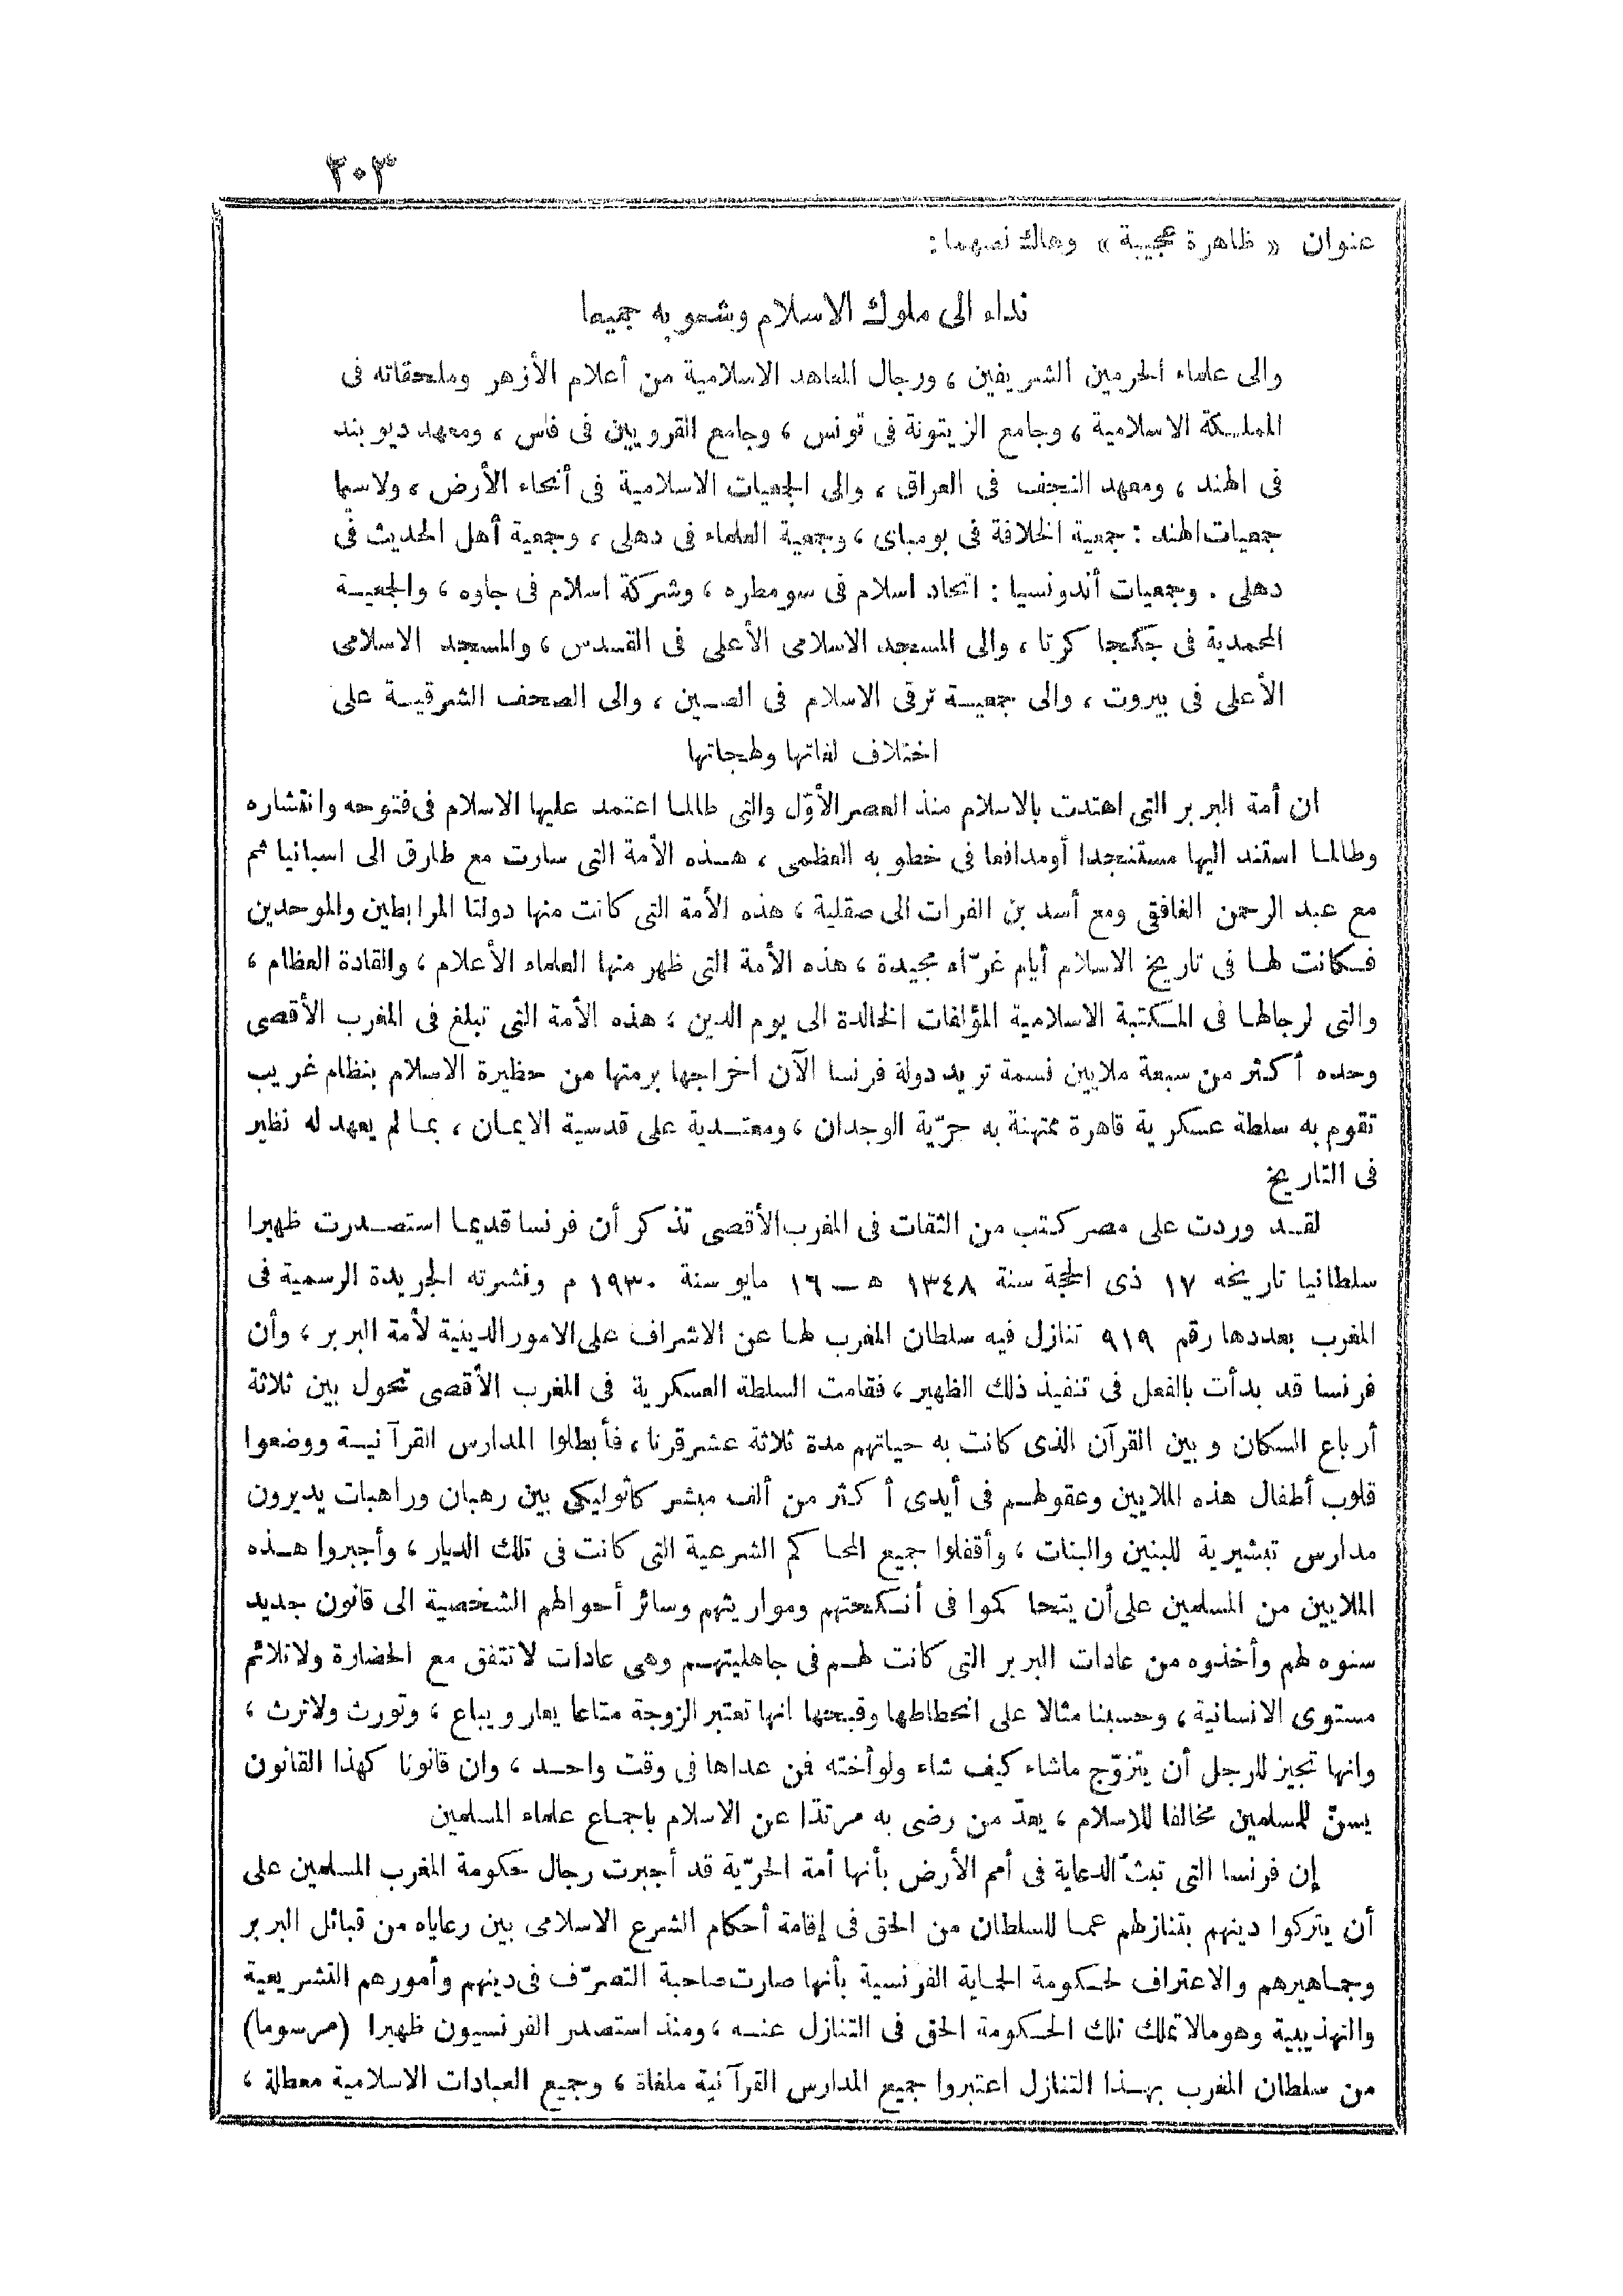 ٣٠٣
عنوان «ظاهرة عجيبة» وهاك نصهما:
نداء الى ملوك الاسلام وشعوبه جميعا
والى علماء الحرمين الشريفين، ورجال المعاهد الاسلامية من أعلام الأزهر وملحقاته فى
المملكة الاسلامية، وجامع الزيتونة فى تونس، وجامع القرويين فى فاس، ومعهد ديوبند
فى الهند، ومعهد النجف فى العراق، والى الجمعيات الاسلامية فى أنحاء الأرض، ولاسيما
جمعيات الهند: جمعية الخلافة فى بومباى، وجمعية العلماء فى دهلى، وجمعية أهل الحديث فى
دهلى. وجمعيات أندونسيا: اتحاد اسلام فى سومطره، وشركة اسلام فى جاوه، والجمعية
المحمدية فى جكجا كرتا، والى المسجد الاسلامى الأعلى فى القدس، والمسجد الاسلامى
الأعلى فى بيروت، والى جمعية ترقى الاسلام فى الصين، والى الصحف الشرقية على
اختلاف لغاتها ولهجاتها
ان أمة البربر التى اهتدت بالاسلام منذ العصر الأوّل والتى طالما اعتمد عليها الاسلام فى فتوحه وانتشاره
وطالما استند اليها مستنجدا أومدافعا فى خطوبه العظمى، هذه الأمة التى سارت مع طارق الى اسبانيا ثم
مع عبد الرحمن الغافقى ومع أسد بن الفرات الى صقلية، هذه الأمة التى كانت منها دولتا المرابطين والموحدين
فكانت لها فى تاريخ الاسلام أيام غرّاء مجيدة، هذه الأمة التى ظهر منها العلماء الأعلام، والقادة العظام،
والتى لرجالها فى المكتبة الاسلامية المؤلفات الخالدة الى يوم الدين، هذه الأمة التى تبلغ فى المغرب الأقصى
وحده أكثر من سبعة ملايين نسمة تريد دولة فرنسا الآن اخراجها برمتها من حظيرة الاسلام بنظام غريب
تقوم به سلطة عسكرية قاهرة ممتهنة به حرّية الوجدان، ومعتدية على قدسية الايمان، بما لم يعهد له نظير
فى التاريخ
لقد وردت على مصر كتب من الثقات فى المغرب الأقصى تذكر أن فرنسا قديما استصدرت ظهيرا
سلطانيا تاريخه ١٧ ذى الحجة سنة ١٣٤٨ هـ - ١٦ مايو سنة ١٩٣٠ م ونشرته الجريدة الرسمية فى
المغرب بعددها رقم ٩١٩ تنازل فيه سلطان المغرب لها عن الاشراف على الامور الدينية لأمة البربر، وأن
فرنسا قد بدأت بالفعل فى تنفيذ ذلك الظهير، فقامت السلطة العسكرية فى المغرب الأقصى تحول بين ثلاثة
أرباع السكان وبين القرآن الذى كانت به حياتهم مدة ثلاثة عشر قرنا، فأبطلوا المدارس القرآنية ووضعوا
قلوب أطفال هذه الملايين وعقولهم فى أيدى أكثر من ألف مبشر كاثوليكى بين رهبان وراهبات يديرون
مدارس تبشيرية للبنين والبنات، وأقفلوا جميع المحاكم الشرعية التى كانت فى تلك الديار، وأجبروا هذه
الملايين من المسلمين على أن يتحاكموا فى أنكحتهم ومواريثهم وسائر أحوالهم الشخصية الى قانون جديد
سنوه لهم وأخذوه من عادات البربر التى كانت لهم فى جاهليتهم وهى عادات لاتتفق مع الحضارة ولاتلائم
مستوى الانسانية، وحسبنا مثالا على انحطاطها وقبحها انها تعتبر الزوجة متاعا يعار ويباع، وتورث ولاترث،
وانها تجيز للرجل أن يتزوّج ماشاء كيف شاء ولوأخته فمن عداها فى وقت واحد، وان قانونا كهذا القانون
يسنّ للمسلمين مخالفا للاسلام، يعدّ من رضى به مرتدّا عن الاسلام باجماع علماء المسلمين
إن فرنسا التى تبثّ الدعاية فى أمم الأرض بأنها أمة الحرّية قد أجبرت رجال حكومة المغرب المسلمين على
أن يتركوا دينهم بتنازلهم عما للسلطان من الحق فى إقامة أحكام الشرع الاسلامى بين رعاياه من قبائل البربر
وجماهيرهم والاعتراف لحكومة الحماية الفرنسية بأنها صارت صاحبة التصرّف فى دينهم وأمورهم التشريعية
والتهذيبية وهو مالا تملك تلك الحكومة الحق فى التنازل عنه، ومنذ استصدر الفرنسيون ظهيرا (مرسوما)
من سلطان المغرب بهذا التنازل اعتبروا جميع المدارس القرآنية ملغاة، وجميع العبادات الاسلامية معطلة،